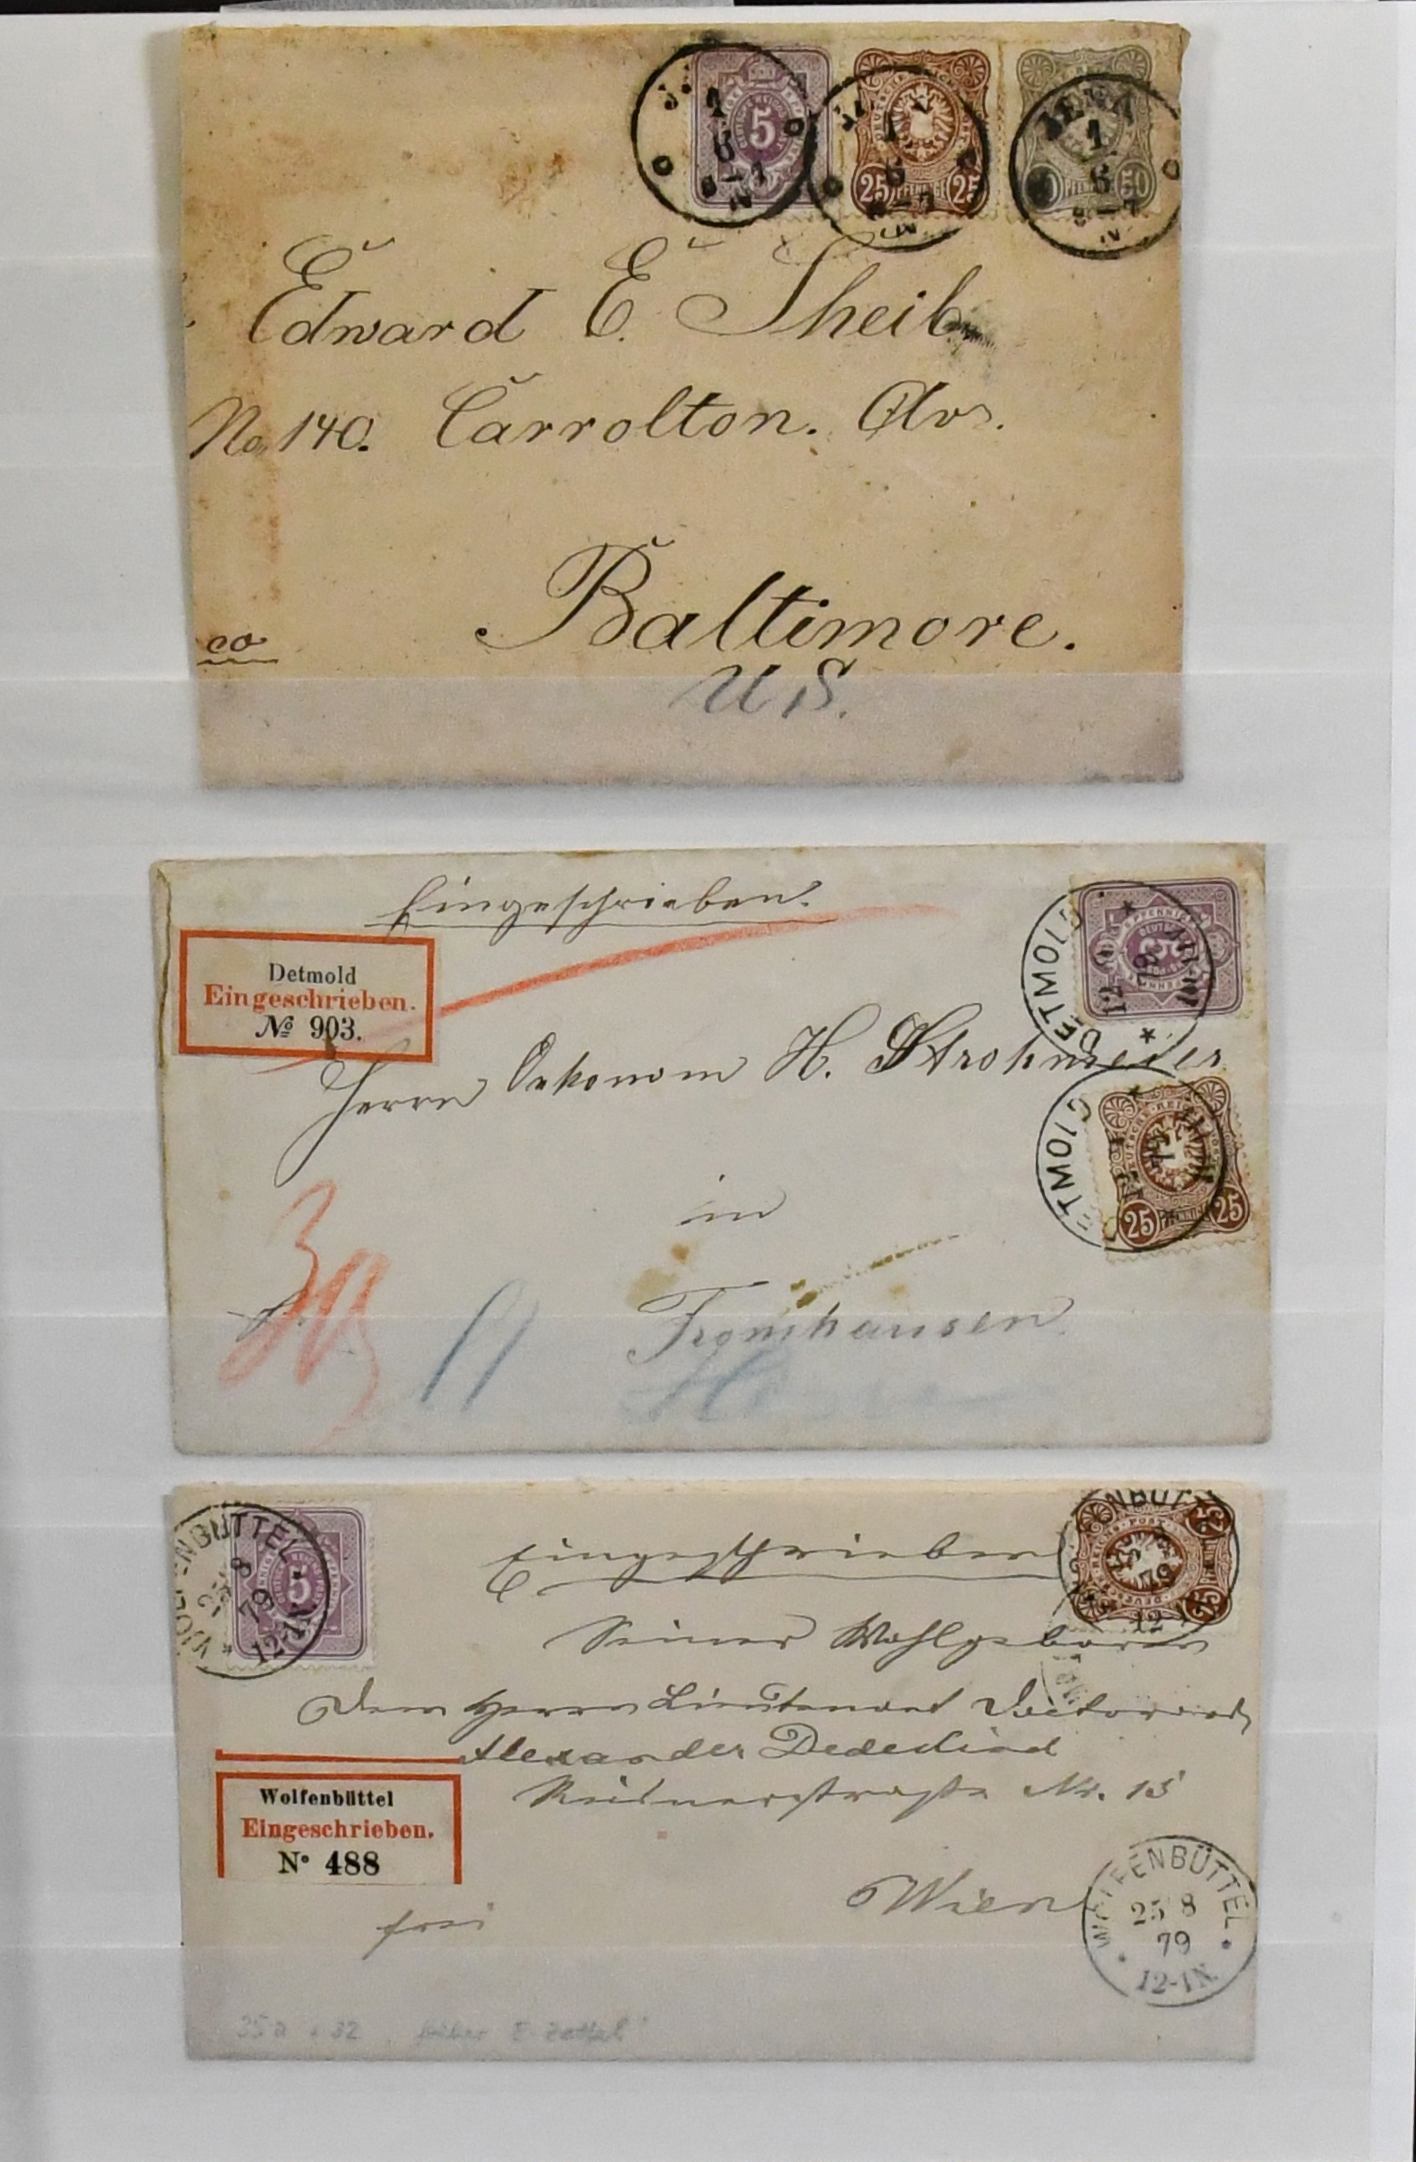 5
25 PFENNIGE 25
50
JENA
1
6
8-7
N
Edward E. Sheib
No. 140. Carrolton. Av.
Baltimore.
U.S.
Eingeschrieben.
Detmold
Eingeschrieben.
№ 903.
DETMOLD
Herrn Oekonom H. Strohmeier
DETMOLD
25 PFENNIGE 25
in
Fromhausen
WOLFENBÜTTEL
8
79
12-1N.
5
79
Eingeschrieben
Seiner Wohlgeboren
dem Herrn Lieutenant
Alexander Dedekind
Nr. 15
Wolfenbüttel
Eingeschrieben.
N° 488
Wien
frei
WOLFENBÜTTEL
25 8
79
12-1N.
35a + 32 früher E-Zettel